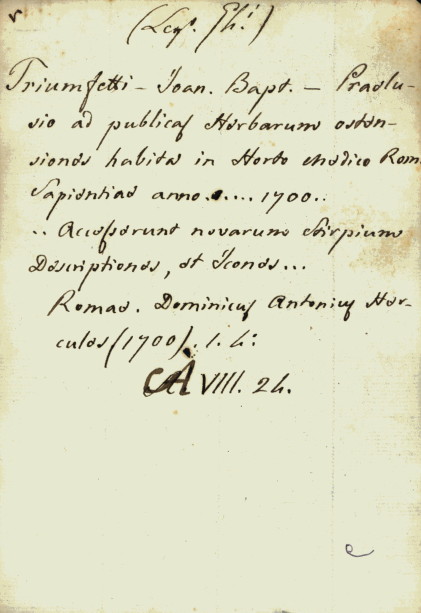 (Leg. Gh.)
Triumfetti - Joan. Bapt. - Praelu-
sio ad publicas Herbarum osten-
siones habita in Horto Medico Rom.
Sapientiae anno ..... 1700..
.. Accesserunt novarum Stirpium
Descriptiones, et Icones...
Romae. Dominicus Antonius Her-
cules (1700). 1. 4:
A. VIII. 24.